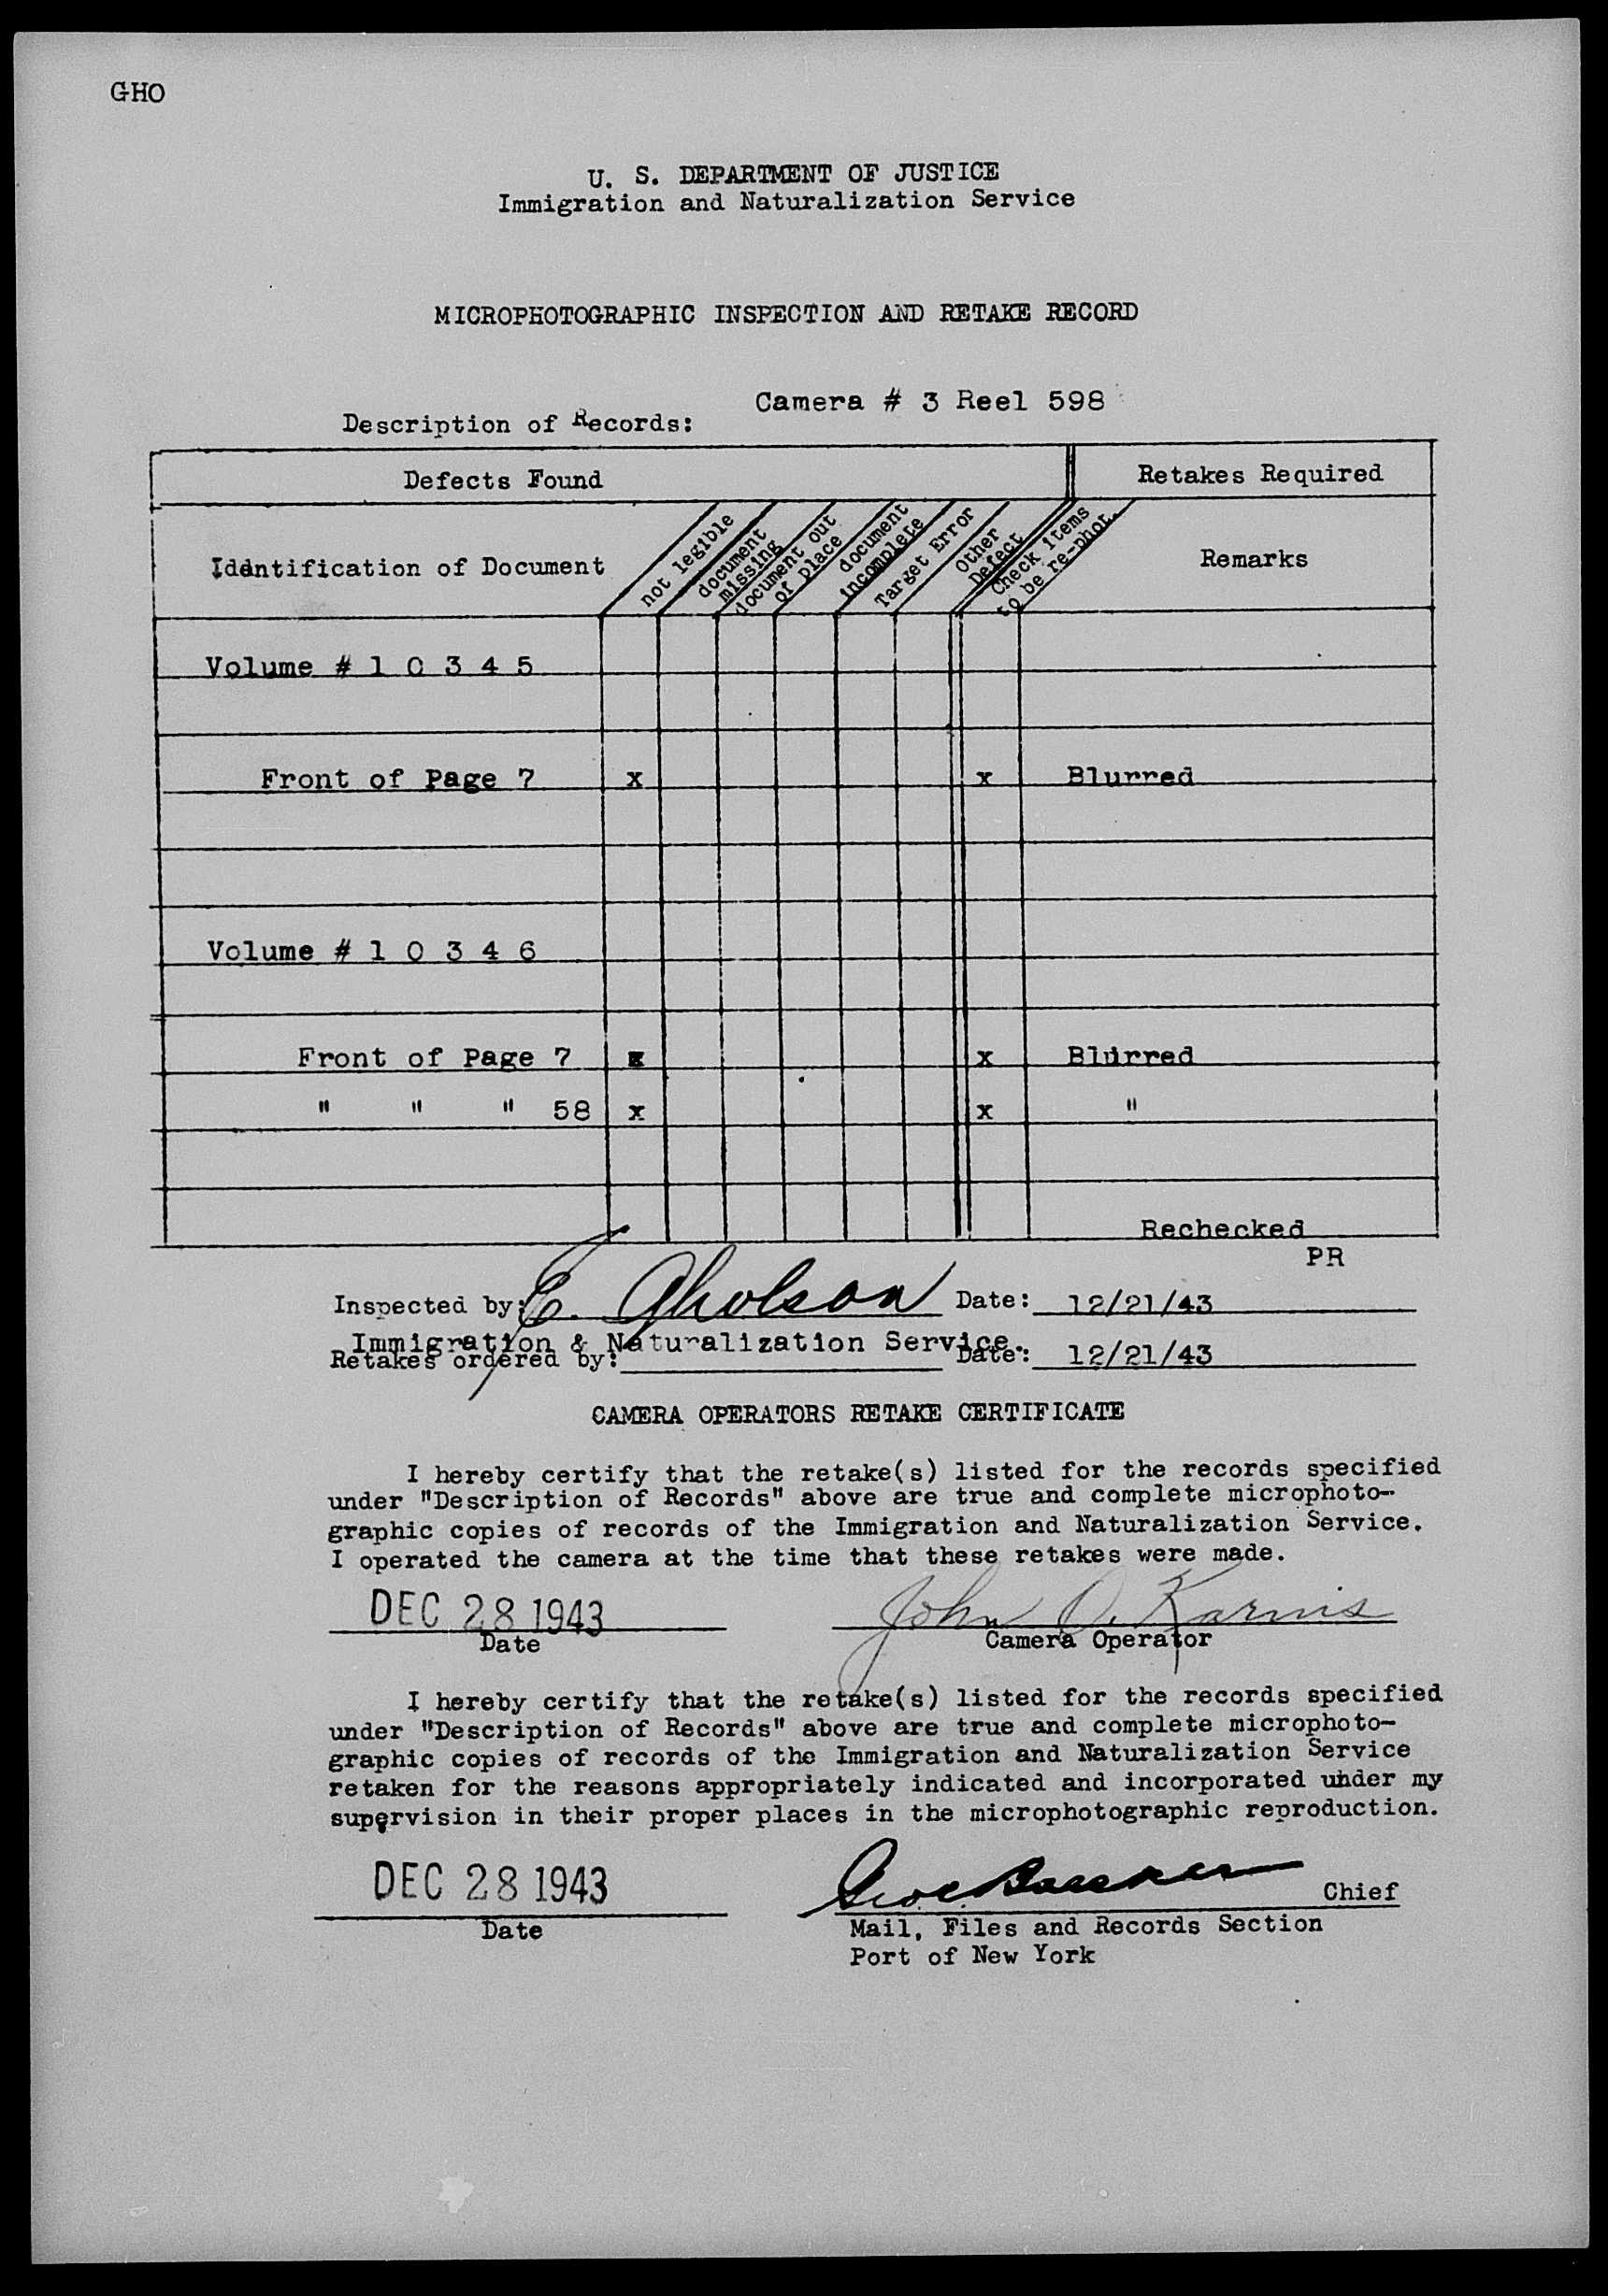 GHO
U. S. DEPARTMENT OF JUSTICE
Immigration and Naturalization Service
MICROPHOTOGRAPHIC INSPECTION AND RETAKE RECORD
Camera # 3 Reel 598
Description of Records:
Defects Found
Retakes Required
Iddntification of Document
not legible
document missing
document out of place
document incomplete
Target Error
Other Defect
Check items to be re-phot.
Remarks
Volume # 1 0 3 4 5
Front of Page 7 x x Blurred
Volume # 1 0 3 4 6
Front of Page 7 x x Blurred
" " " 58 x x "
Rechecked
PR
Inspected by: E. Gholson Date: 12/21/43
Immigration & Naturalization Service.
Retakes ordered by: Date: 12/21/43
CAMERA OPERATORS RETAKE CERTIFICATE
I hereby certify that the retake(s) listed for the records specified
under "Description of Records" above are true and complete microphoto-
graphic copies of records of the Immigration and Naturalization Service.
I operated the camera at the time that these retakes were made.
DEC 28 1943 John O. Karnis
Date Camera Operator
I hereby certify that the retake(s) listed for the records specified
under "Description of Records" above are true and complete microphoto-
graphic copies of records of the Immigration and Naturalization Service
retaken for the reasons appropriately indicated and incorporated under my
supervision in their proper places in the microphotographic reproduction.
DEC 28 1943 Chief
Date
Mail, Files and Records Section
Port of New York